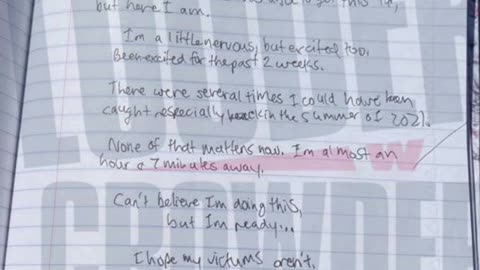 but here I am.
I'm a little nervous, but excited too.
Been excited for the past 2 weeks.
There were several times I could have been
caught especially back in the summer of 2021.
None of that matters now. I'm almost an
hour & 7 minutes away.
Can't believe I'm doing this,
but I'm ready...
I hope my victims aren't.
LOUDER
W
CROWDER